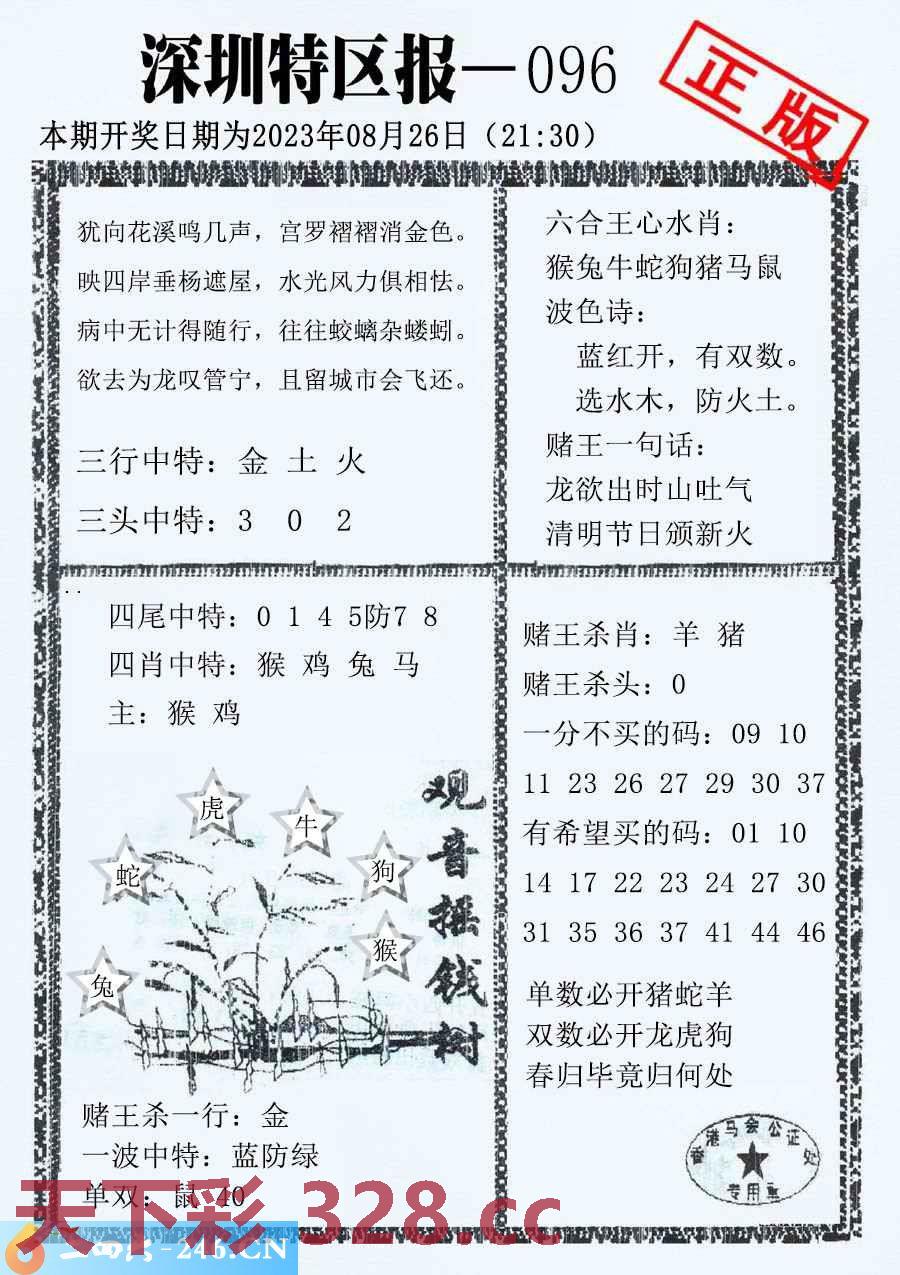 深圳特区报—096
正版
本期开奖日期为2023年08月26日（21:30）
犹向花溪鸣几声，宫罗褶褶消金色。
映四岸垂杨遮屋，水光风力俱相怯。
病中无计得随行，往往蛟螭杂蝼蚓。
欲去为龙叹管宁，且留城市会飞还。
三行中特：金 土 火
三头中特：3 0 2
六合王心水肖：
猴兔牛蛇狗猪马鼠
波色诗：
蓝红开，有双数。
选水木，防火土。
赌王一句话：
龙欲出时山吐气
清明节日颁新火
四尾中特：0 1 4 5防7 8
四肖中特：猴 鸡 兔 马
主：猴 鸡
观音摇钱树
虎
牛
蛇
狗
猴
兔
赌王杀一行：金
一波中特：蓝防绿
单双：鼠 40
赌王杀肖：羊 猪
赌王杀头：0
一分不买的码：09 10
11 23 26 27 29 30 37
有希望买的码：01 10
14 17 22 23 24 27 30
31 35 36 37 41 44 46
单数必开猪蛇羊
双数必开龙虎狗
春归毕竟归何处
香港马会公证处
专用章
天下彩 328.cc
-246.CN